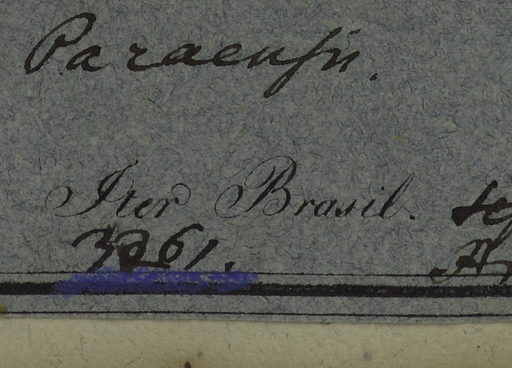 Paraensis.
Iter Brasil.
3261.